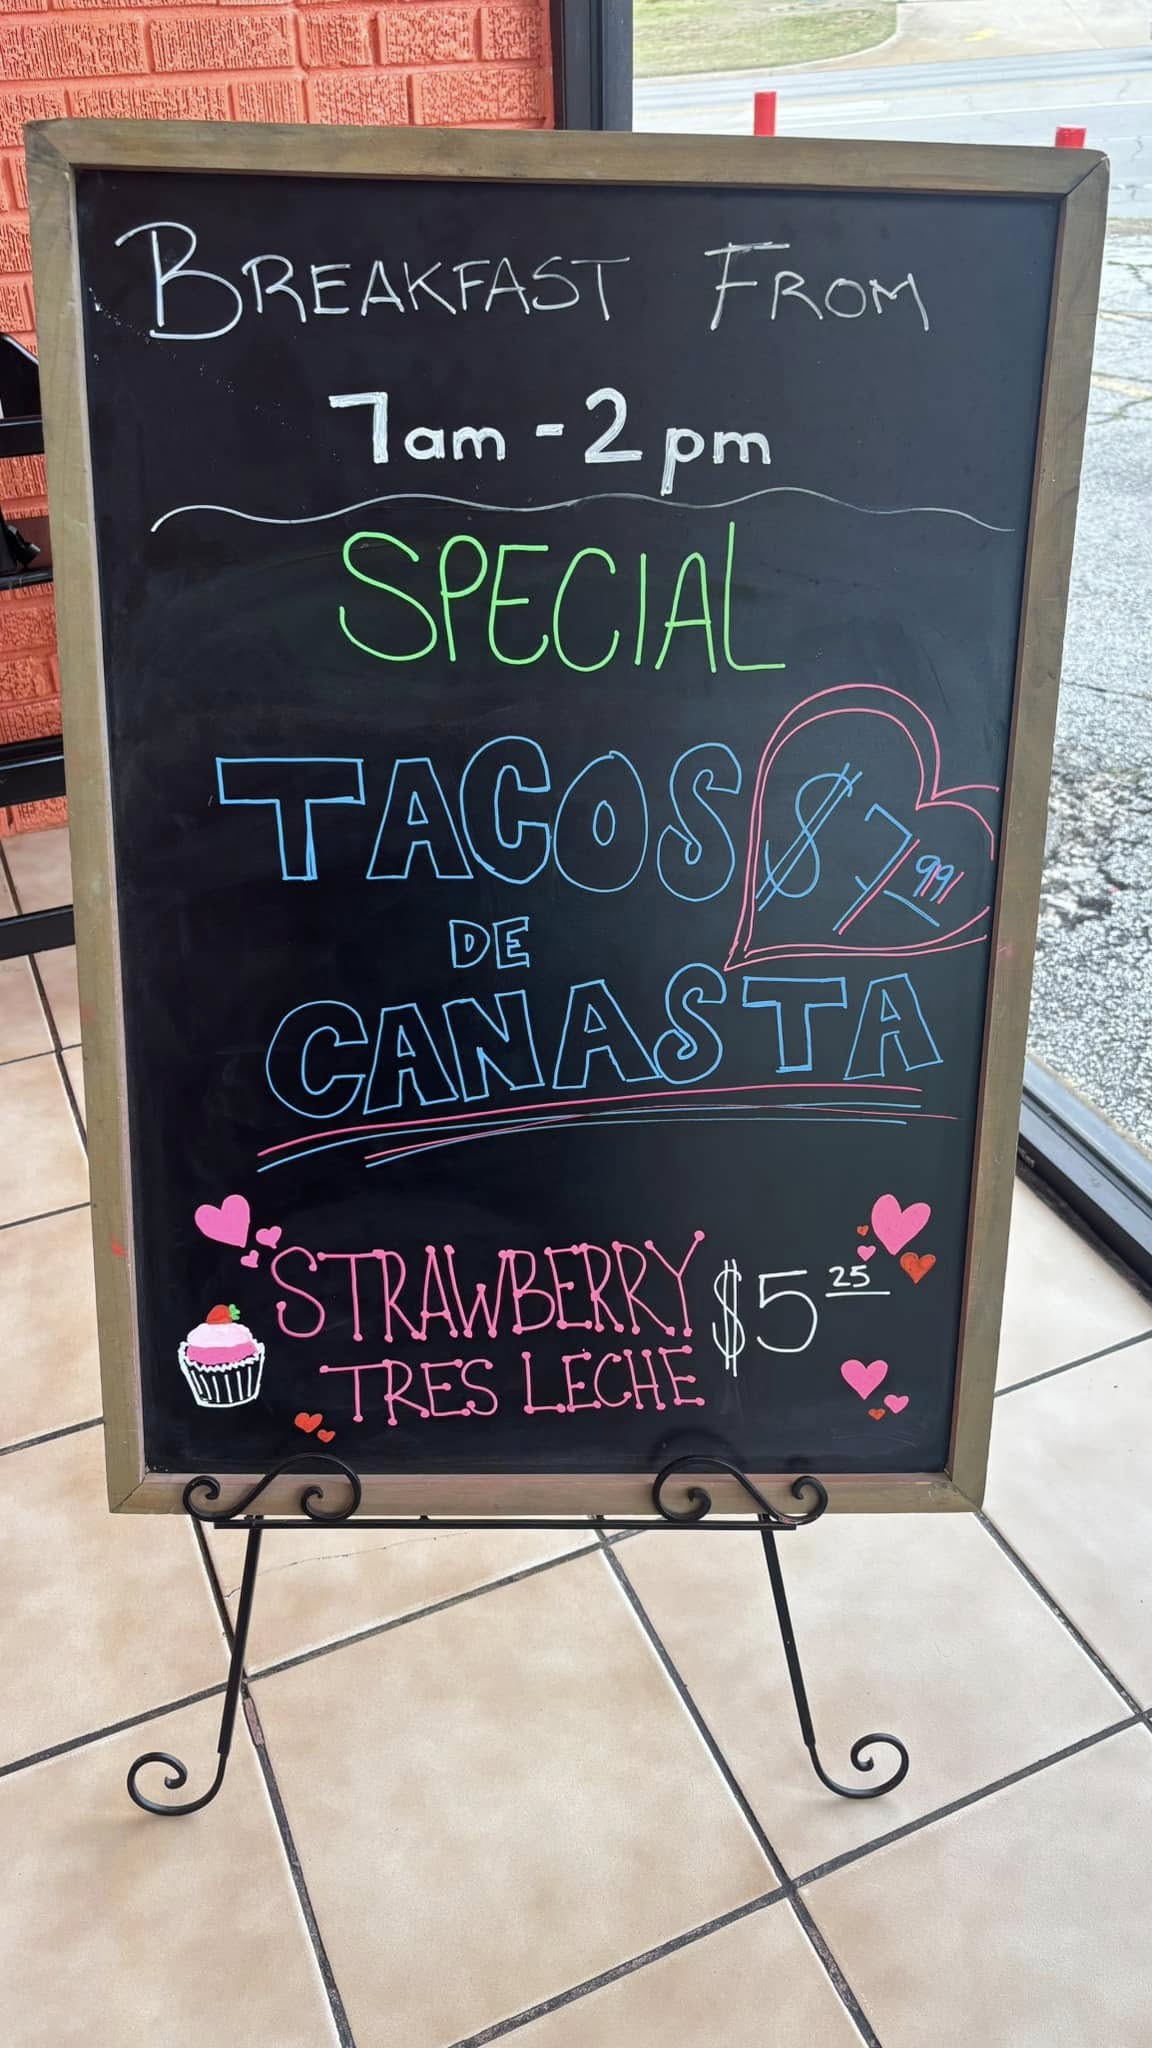 BREAKFAST FROM
7am - 2pm
SPECIAL
TACOS $7.99
DE
CANASTA
STRAWBERRY $5 25
TRES LECHE